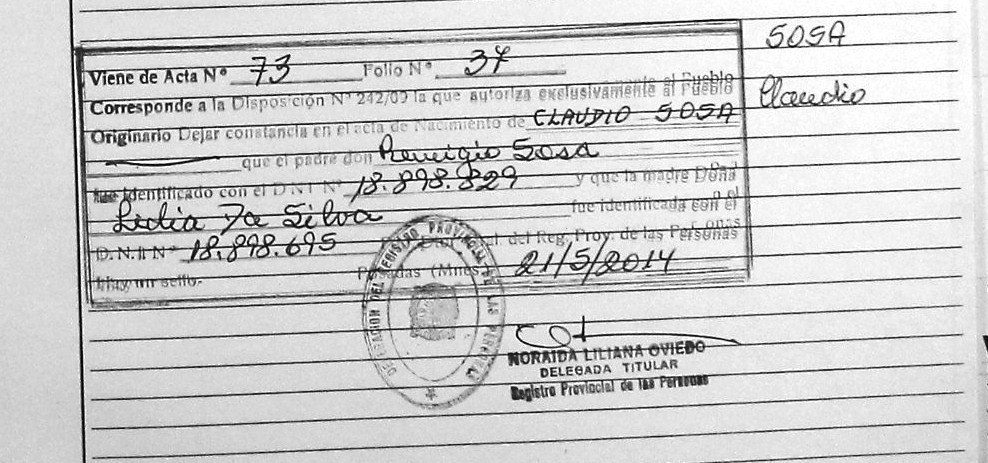 SOSA
Claudio
Viene de Acta Nº 73 Folio Nº 37
Corresponde a la Disposición Nº 242/09 la que autoriza exclusivamente al Pueblo
Originario Dejar constancia en el acta de Nacimiento de CLAUDIO SOSA
que el padre don Remigio Sosa
fue identificado con el D N I Nº 18.898.829 y que la madre Doña
Lidia Da Silva fue identificada con el
D.N.I Nº 18.898.695 al. del Reg. Prov. de las Personas
Posadas (Mnes 21/5/2014
Hay un sello.-
DELEGACION DEL REGISTRO PROVINCIAL DE LAS PERSONAS
NORAIDA LILIANA OVIEDO
DELEGADA TITULAR
Registro Provincial de las Personas